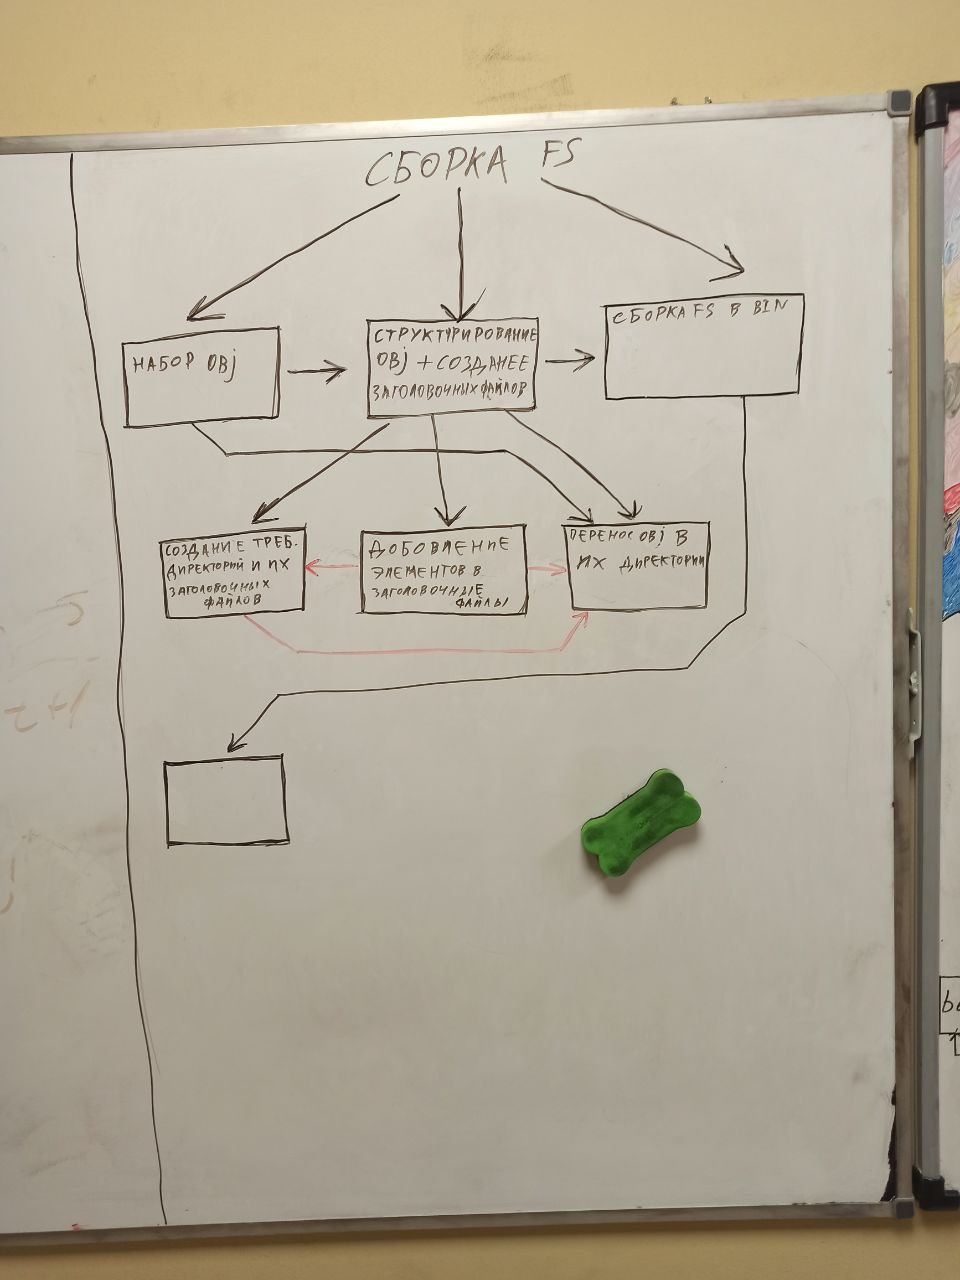 СБОРКА FS
НАБОР OBj
СТРУКТУРИРОВАНИЕ
OBj + СОЗДАНЕЕ
ЗАГОЛОВОЧНЫХ ФАЙЛОВ
СБОРКА FS В BIN
СОЗДАНИЕ ТРЕБ.
ДИРЕКТОРИЙ И ИХ
ЗАГОЛОВОЧНЫХ
ФАЙЛОВ
ДОБОВЛЕНИЕ
ЭЛЕМЕНТОВ В
ЗАГОЛОВОЧНЫЕ
ФАЙЛЫ
ПЕРЕНОС OBj В
ИХ ДИРЕКТОРИИ